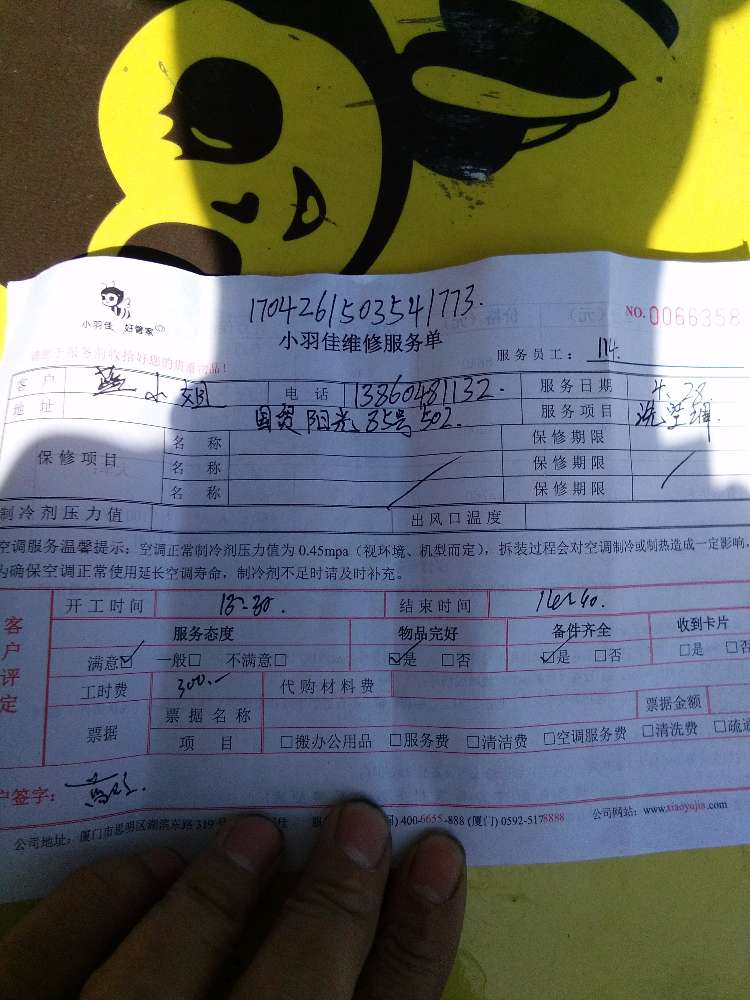 170426150354177 3.
小羽佳 好管家
小羽佳维修服务单
NO.0066358
请您于服务前收拾好您的贵重物品！
服务员工： 114.
客户 蓝小姐 电话 13860481132. 服务日期 4.28
地址 国贸阳光35号502. 服务项目 洗空调
保修项目 名称 保修期限
名称 保修期限
名称 保修期限
制冷剂压力值 出风口温度
空调服务温馨提示：空调正常制冷剂压力值为 0.45mpa（视环境、机型而定），拆装过程会对空调制冷或制热造成一定影响，
为确保空调正常使用延长空调寿命，制冷剂不足时请及时补充。
客户评定
开工时间 结束时间
服务态度 物品完好 备件齐全 收到卡片
满意☑ 一般□ 不满意□ ☑是 □否 ☑是 □否 □是 □否
工时费 300.- 代购材料费
票据 票据名称 票据金额
项目 □搬办公用品 □服务费 □清洁费 □空调服务费 □清洗费 □疏通
户签字：
公司地址：厦门市思明区湖滨东路 319号 400-6655-888 (厦门) 0592-5178888 公司网站：www.xiaoyujia.com